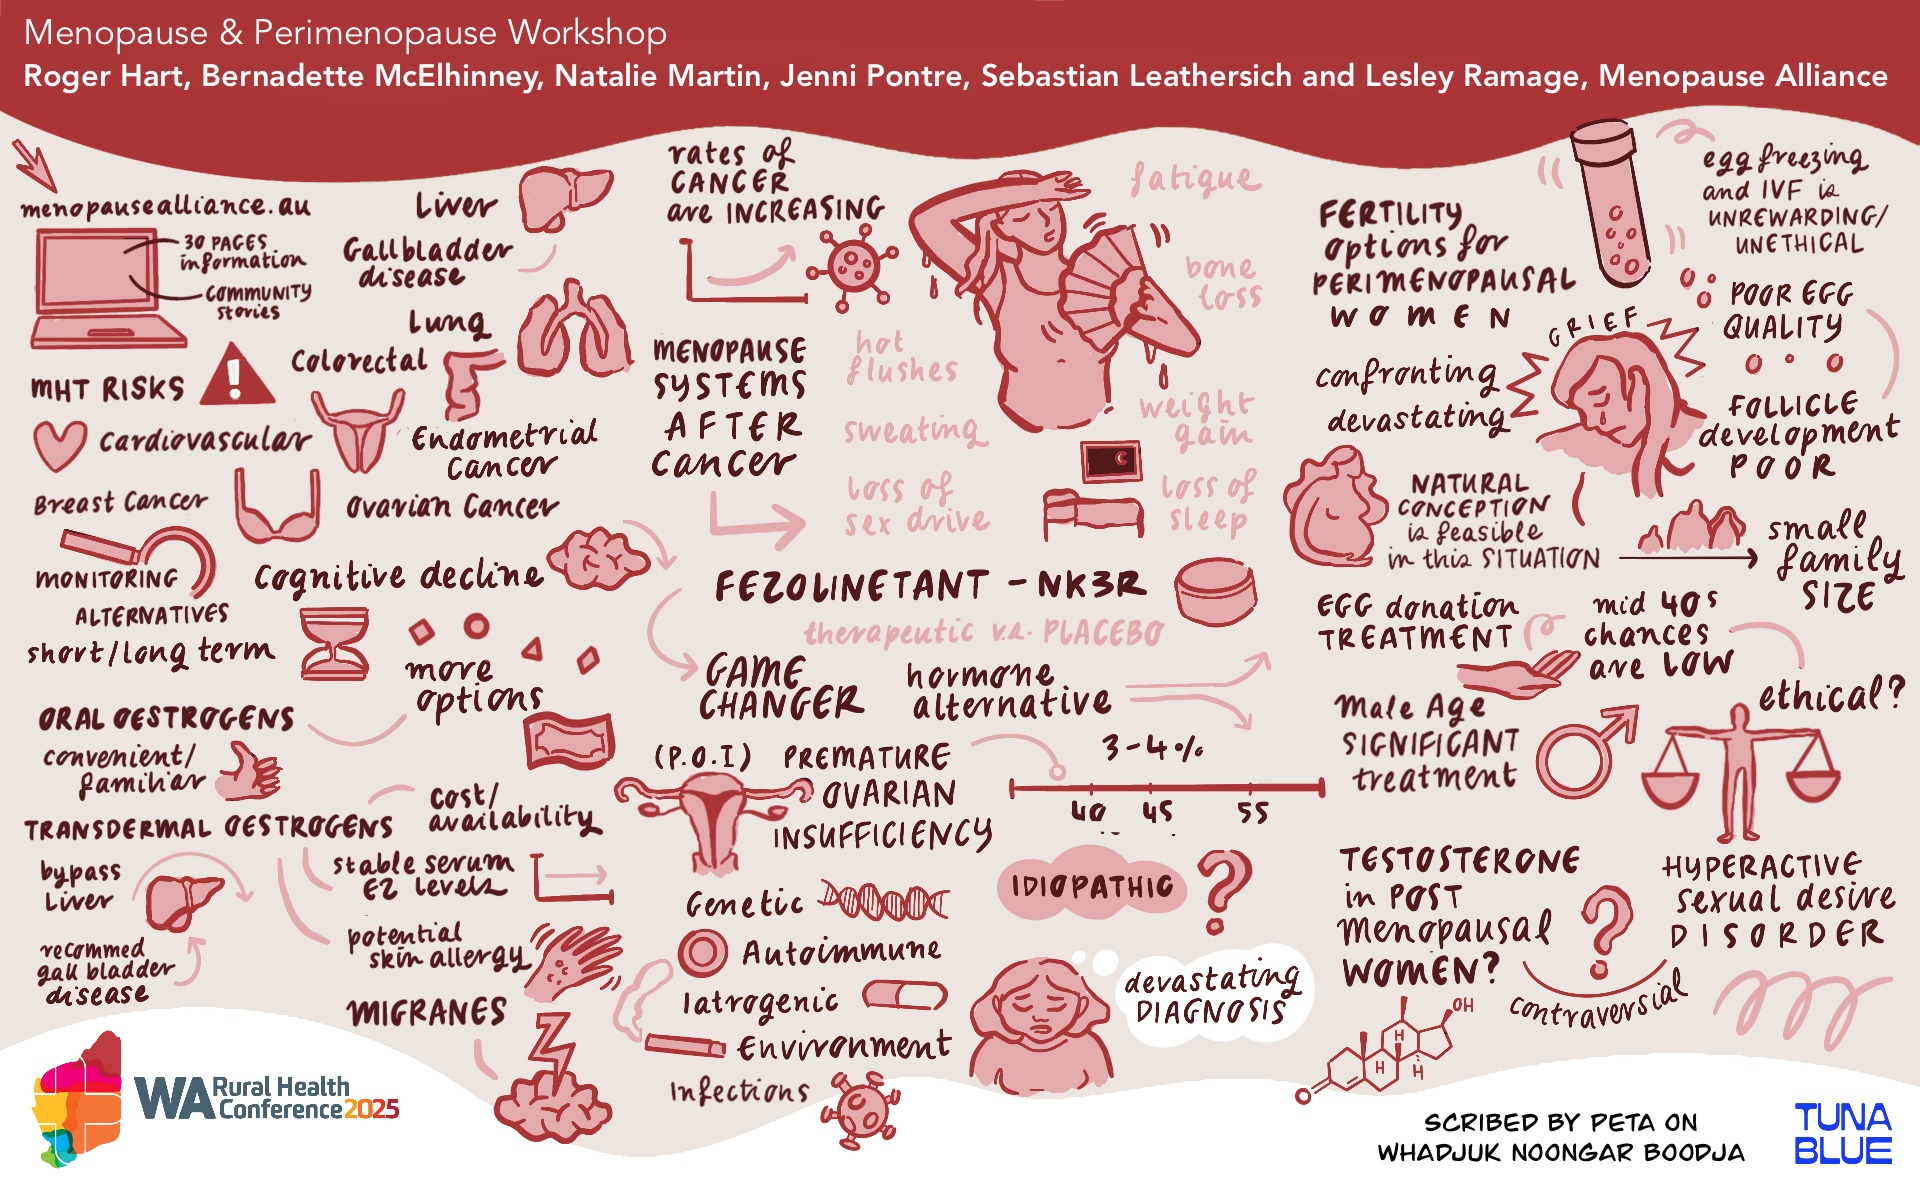 Menopause & Perimenopause Workshop
Roger Hart, Bernadette McElhinney, Natalie Martin, Jenni Pontre, Sebastian Leathersich and Lesley Ramage, Menopause Alliance
menopausealliance.au
30 PAGES
information
COMMUNITY
stories
MHT RISKS
!
Liver
Gallbladder
disease
Lung
Colorectal
Cardiovascular
Endometrial
Cancer
Breast Cancer
Ovarian Cancer
MONITORING
Cognitive decline
ALTERNATIVES
short/long term
more
options
ORAL OESTROGENS
convenient/
familiar
cost/
availability
TRANSDERMAL OESTROGENS
bypass
Liver
stable serum
E2 levels
recommed
gall bladder
disease
potential
skin allergy
MIGRANES
rates of
CANCER
are INCREASING
MENOPAUSE
SYSTEMS
AFTER
cancer
fatigue
bone
loss
hot
flushes
weight
gain
sweating
loss of
sex drive
loss of
sleep
FEZOLINETANT - NK3R
therapeutic v.s. PLACEBO
GAME
CHANGER
hormone
alternative
(P.O.I) PREMATURE
OVARIAN
INSUFFICIENCY
3-4%
40 45 55
Genetic
Autoimmune
Iatrogenic
Environment
Infections
IDIOPATHIC
?
devastating
DIAGNOSIS
FERTILITY
options for
PERIMENOPAUSAL
WOMEN
egg freezing
and IVF is
UNREWARDING/
UNETHICAL
GRIEF
confronting
devastating
POOR EGG
QUALITY
FOLLICLE
development
POOR
NATURAL
CONCEPTION
is feasible
in this SITUATION
small
family
SIZE
EGG donation
TREATMENT
mid 40s
chances
are LOW
Male Age
SIGNIFICANT
treatment
ethical?
TESTOSTERONE
in POST
Menopausal
WOMEN?
?
HYPERACTIVE
sexual desire
DISORDER
contraversial
OH
H
H
H
O
WA Rural Health
Conference 2025
SCRIBED BY PETA ON
WHADJUK NOONGAR BOODJA
TUNA
BLUE